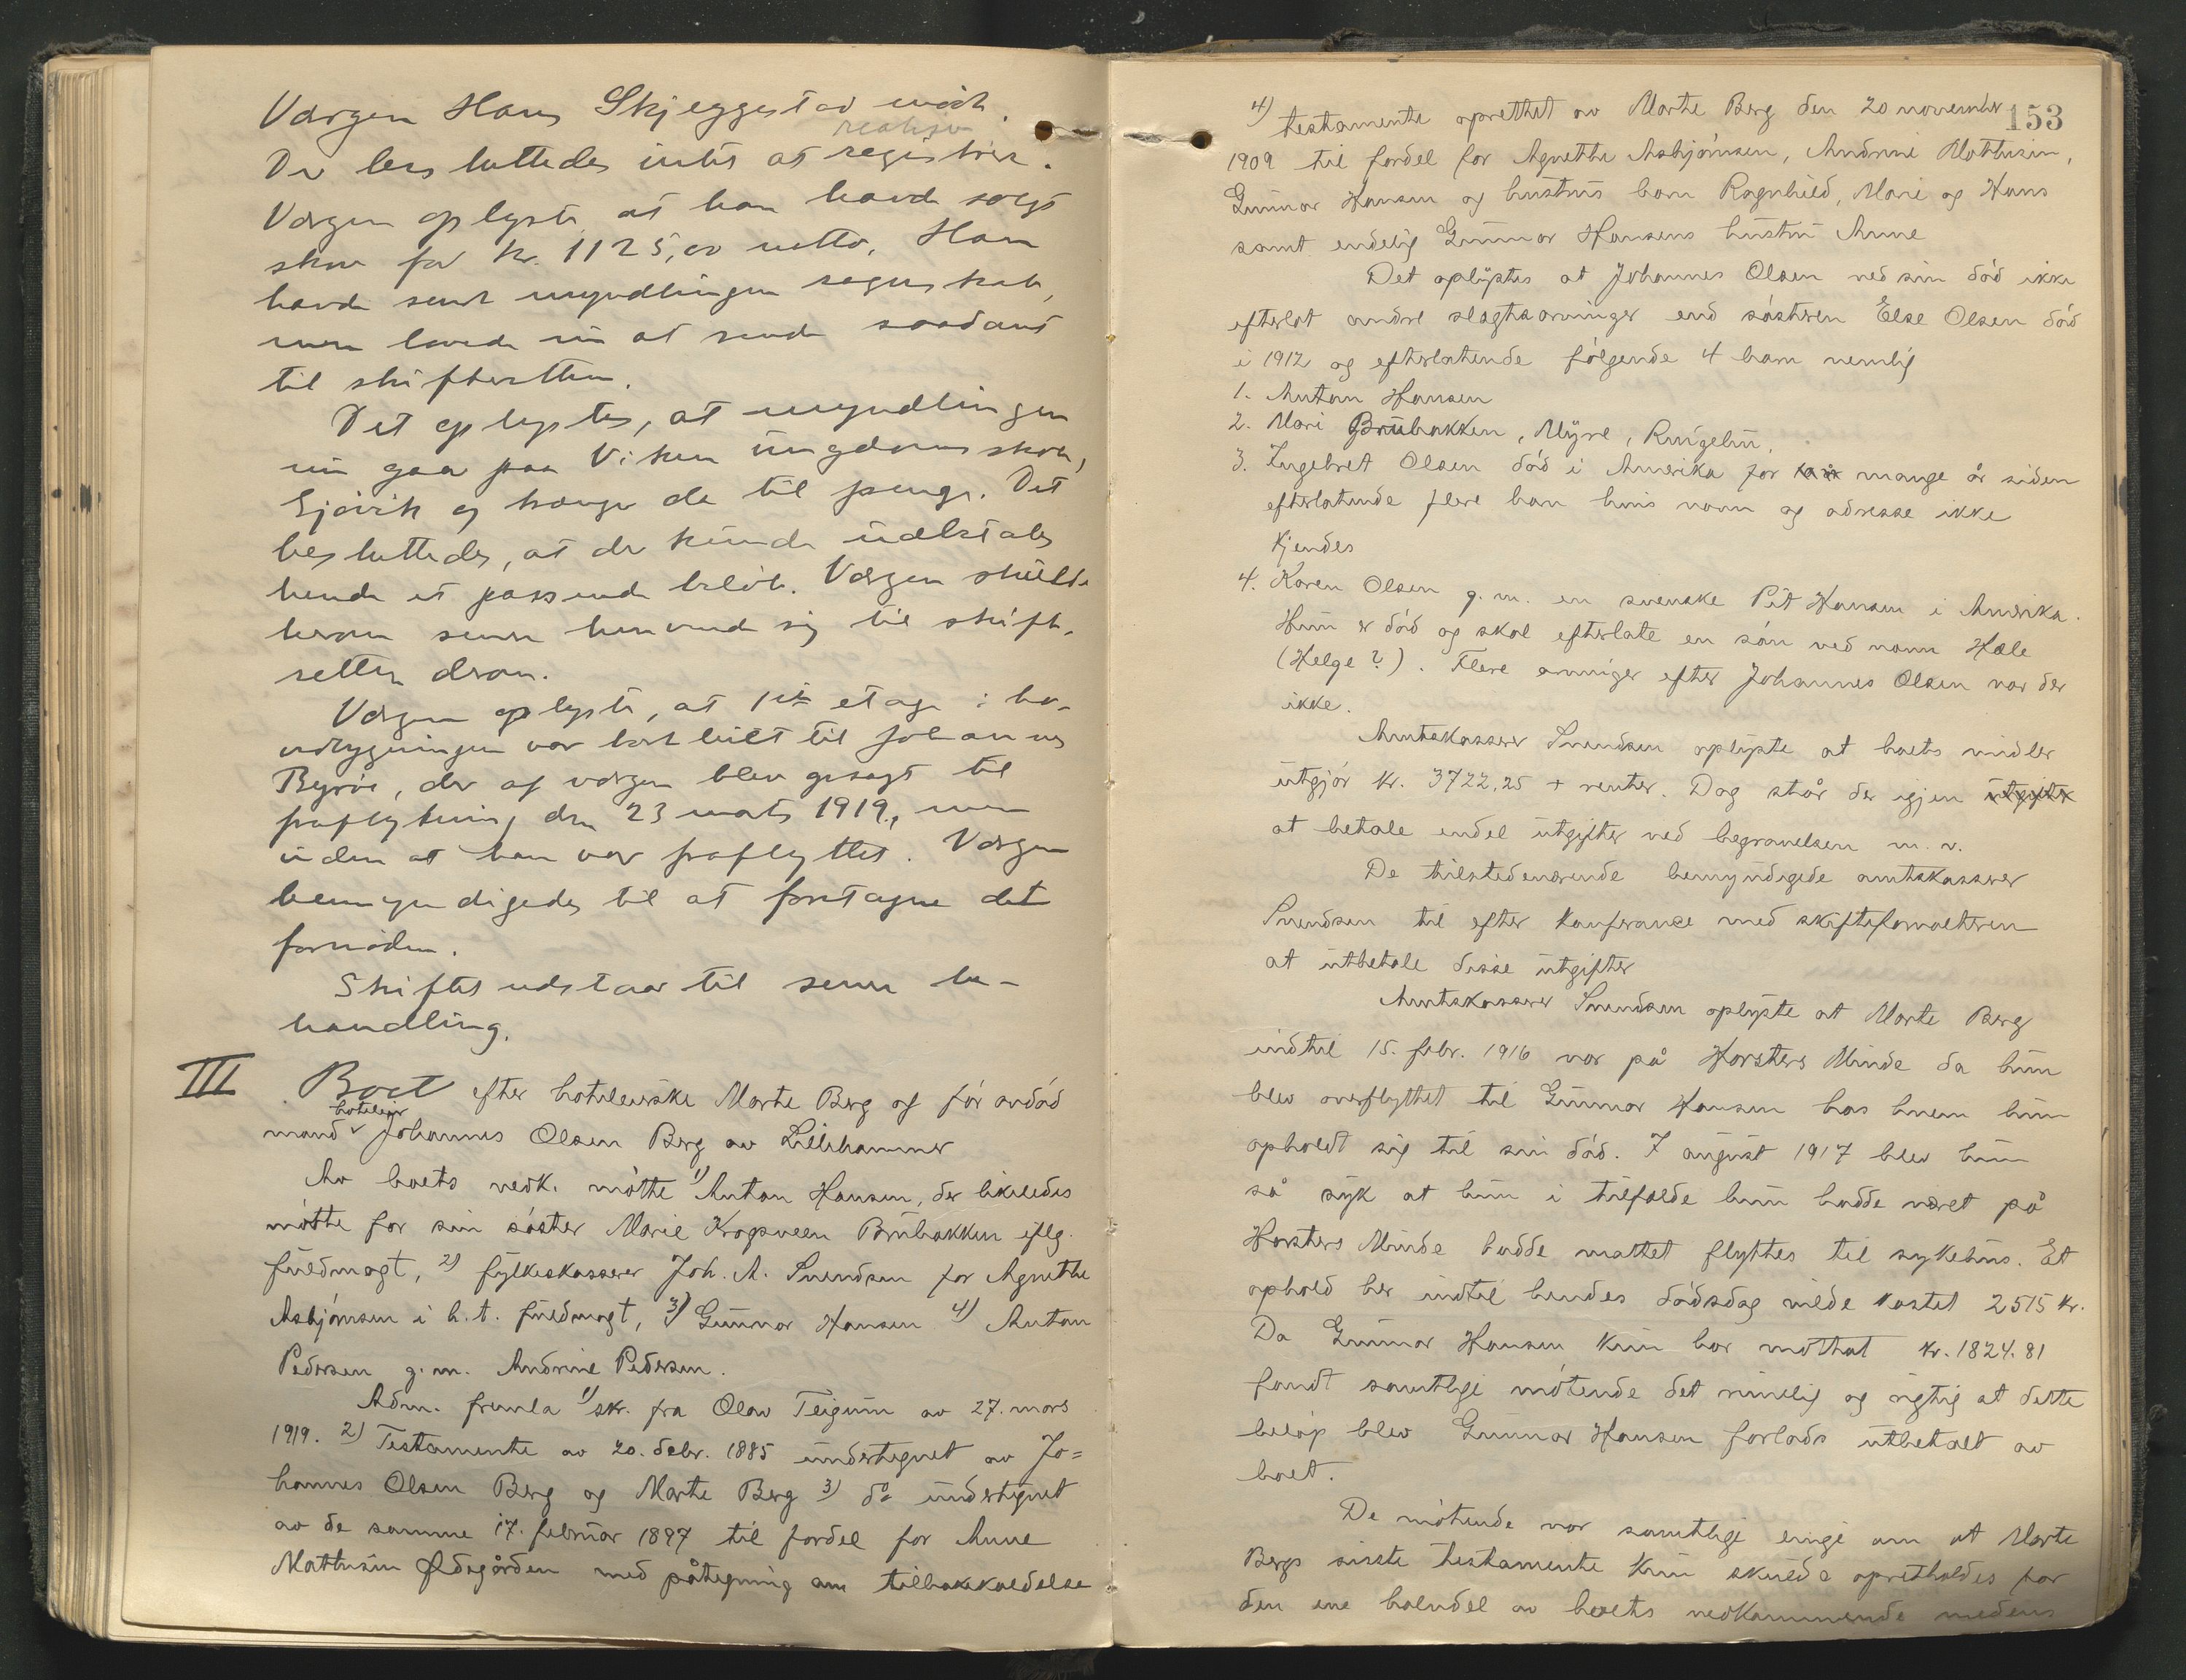 Værgen Hans Skjeggestad mødt.
realiser
Der besluttedes intet at registrere.
Værgen oplyste at han havde solgt
skov for kr. 1125,00 netto. Han
havde sendt myndlingen regnskab,
men lovede nu at sende saadant
til skifteretten.
Det oplystes, at myndlingen
nu gaar paa Viken ungdomsskole,
Gjøvik og trænger da til penge. Det
besluttedes, at der kunde udbetales
hende et passende beløb. Værgen skulde
herom senere henvende sig til skifte-
retten derom.
Værgen oplyste, at 1ste etage i ho-
vedbygningen var bortleiet til Johannes
Byrøe, der af værgen blev opsagt til
fraflytning den 23 marts 1919, men
uden at han var fraflyttet. Værgen
bemyndigedes til at foretagne det
fornødne.
Skiftet udstaar til senere be-
handling.
III Boet efter hoteleierske Marte Berg og før avdød
hoteleier
mand Johannes Olsen Berg av Lillehammer
Av boets vedk. møtte 1) Anton Hansen, der likeledes
møtte for sin søster Marie Kropsveen Brubakken iflg.
fuldmagt, 2) fylkeskasserer Joh. A. Svendsen for Agnethe
Asbjørnsen i h. t. fuldmagt, 3) Gunnar Hansen 4) Anton
Pedersen g. m. Andrine Pedersen.
Adm. fremla 1) skr. fra Olav Teigum av 27. mars
1919. 2) Testamente av 20. debr. 1885 undertegnet av Jo=
hannes Olsen Berg og Marte Berg 3) do undertegnet
av de samme 17. februar 1897 til fordel for Anne
Mathisen Ødegården med påtegning om tilbakkaldelse
153
4) testamente oprettet av Marte Berg den 20 november
1909 til fordel for Agnethe Asbjørnsen, Andrine Mathisen,
Gunnar Hansen og hustrus barn Ragnhild, Marie og Hans
samt endelig Gunnar Hansens hustru Anne
Det oplystes at Johannes Olsen ved sin død ikke
efterlot andre slagtsarvinger end søsteren Else Olsen død
i 1912 og efterlatende følgende 4 barn nemlig
1. Anton Hansen
2. Mari Brubakken, Myre, Ringebu.
3. Ingebret Olsen død i Amerika for mange år siden
efterlatende flere barn hvis navn og adresse ikke
kjendes
4. Karen Olsen g. m. en svenske Pet Hansen i Amerika.
Hun er død og skal efterlate en søn ved navn Hæle
(Helge?). Flere arvinger efter Johannes Olsen var der
ikke.
Amtskasserer Svendsen oplyste at boets midler
utgjør kr. 3722,25 + renter. Dog står der igjen utgifter
at betale endel utgifter ved begravelsen m. v.
De tilstedeværende bemyndigede amtskasserer
Svendsen til efter konferanse med skifteforvalteren
at utbetale disse utgifter
Amtskasserer Svendsen oplyste at Marte Berg
indtil 15. febr. 1916 var på Horsters Minde da hun
blev overflyttet til Gunnar Hansen hos hvem hun
opholdt sig til sin død. 7 august 1917 blev hun
så syk at hun i tilfælde hun hadde været på
Horsters Minde hadde måttet flyttes til sykehus. Et
ophold her indtil hendes dødsdag vilde kostet 2515 kr.
Da Gunnar Hansen kun har mottat kr. 1824.81
fandt samtlige møtende det rimelig og rigtig at dette
beløp blev Gunnar Hansen forlods utbetalt av
boet.
De møtende var samtlige enige om at Marte
Bergs siste testamente kun skulde opretholdes for
den ene halvdel av boets vedkommende medens